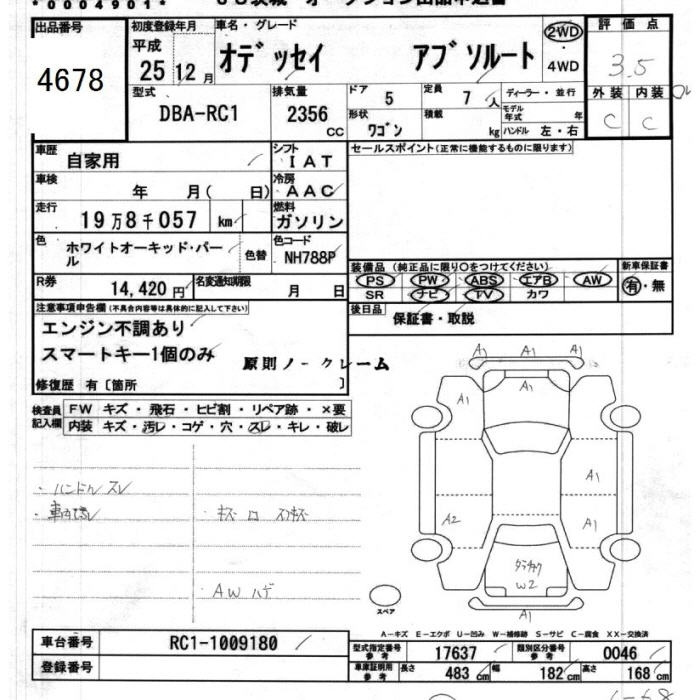 *0004901*
出品番号 初度登録年月 車名・グレード 評価点
4678 平成 25 12月 オデッセイ アブソルート 2WD・4WD 3.5
型式 排気量 ドア 定員 ディーラー・並行 外装 内装
DBA-RC1 2356 CC 5 7人 モデル年式 年 C C
形状 ワゴン 積載 kg ハンドル 左・右
車歴 自家用 シフト IAT セールスポイント(正常に機能するものに限ります)
車検 年 月( 日) 冷房 AAC
走行 19万8千057 km 燃料 ガソリン
色 ホワイトオーキッド・パール 色替 色コード NH788P
装備品 (純正品に限り○をつけてください) 新車保証書
PS PW ABS エアB AW 有・無
SR ナビ TV カワ
R券 14,420円 名変通知期限 月 日
後日品 保証書・取説
注意事項申告欄(不具合内容等は具体的に記入して下さい)
エンジン不調あり
スマートキー1個のみ 原則ノークレーム
修復歴 有〔箇所 〕
検査員記入欄 FW キズ・飛石・ヒビ割・リペア跡・×要
内装 キズ・汚レ・コゲ・穴・スレ・キレ・破レ
・ハンドルスレ
AWハゲ
A1 A1 A1
A1
A1
A2 A1
W2
A1
スペア
A-キズ E-エクボ U-凹み W-補修跡 S-サビ C-腐食 XX-交換済
車台番号 RC1-1009180 型式指定番号 参考 17637 類別区分番号 参考 0046
登録番号 車庫証明用 参考 長さ 483 cm 幅 182 cm 高さ 168 cm